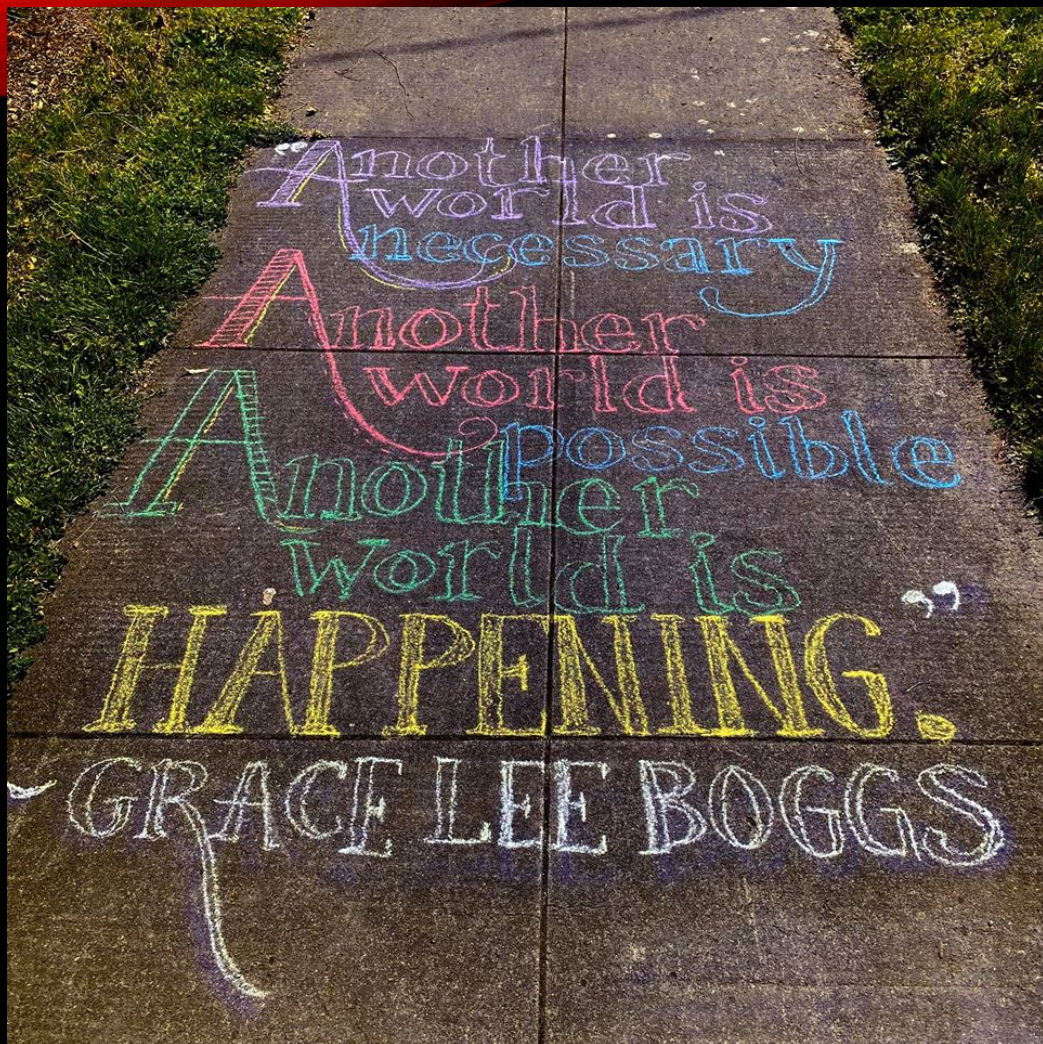 “Another
world is
necessary
Another
world is
possible
Another
world is ”
HAPPENING.
- GRACE LEE BOGGS